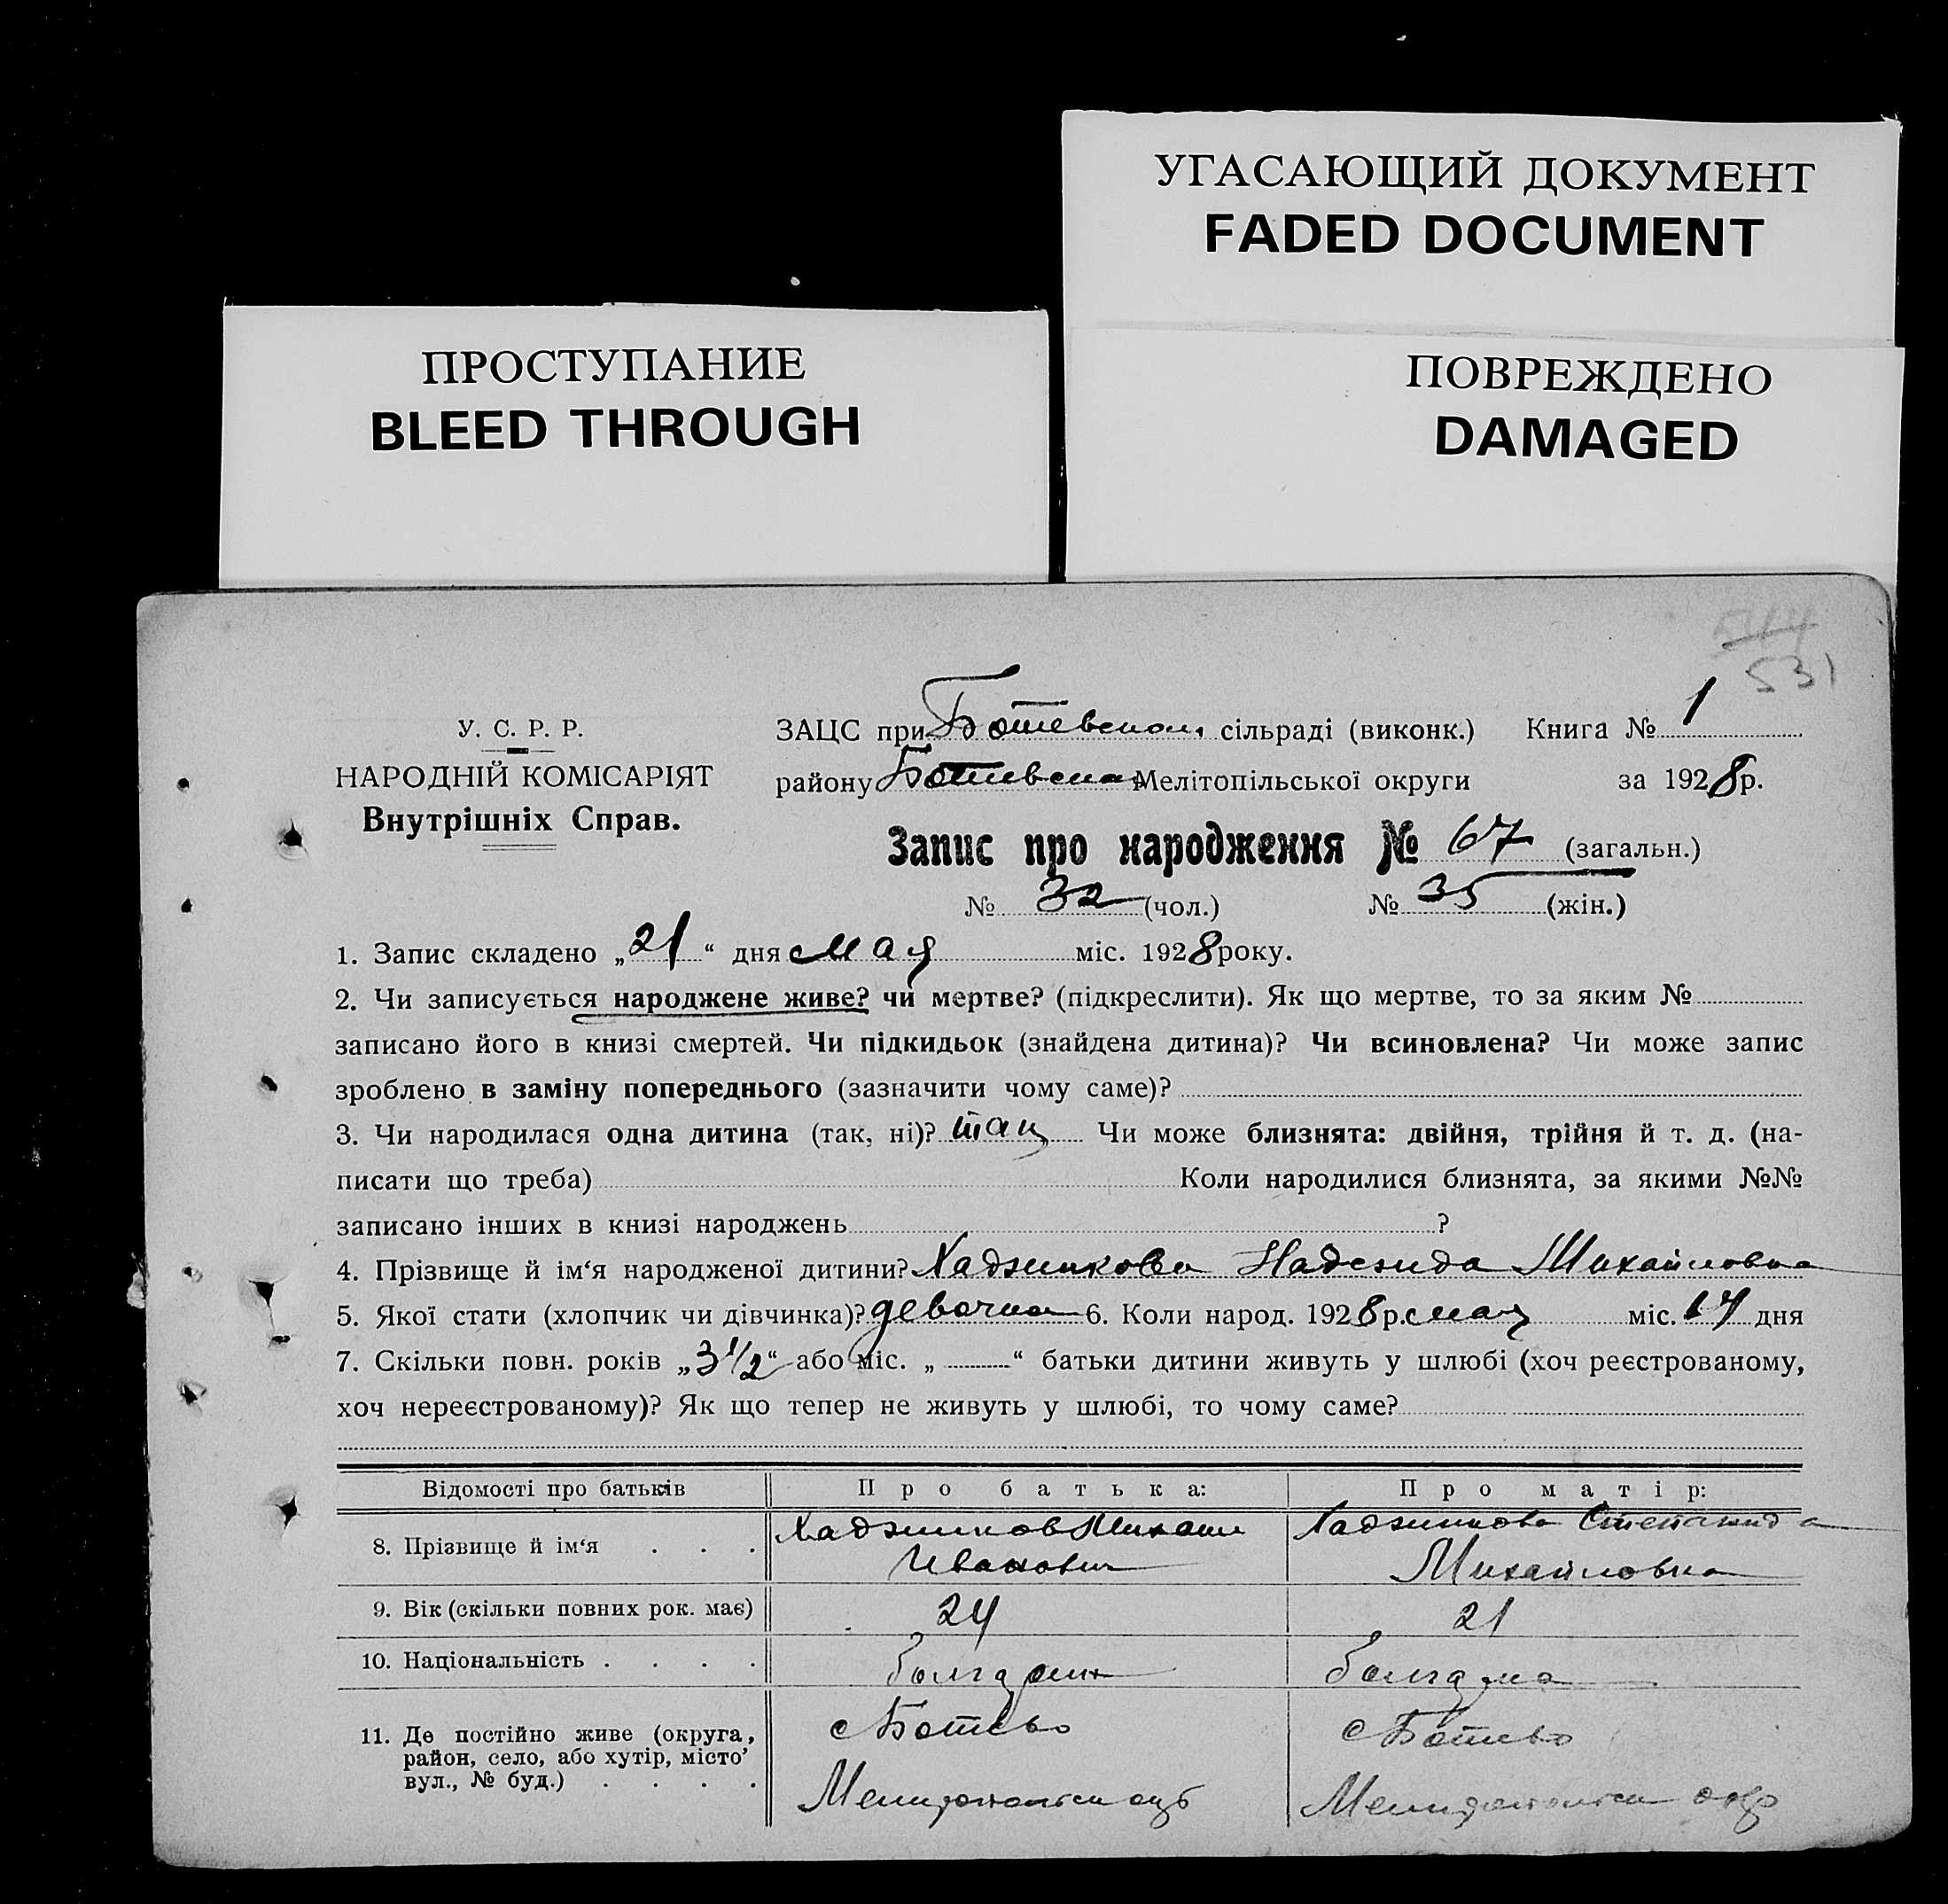 УГАСАЮЩИЙ ДОКУМЕНТ
FADED DOCUMENT
ПРОСТУПАНИЕ
BLEED THROUGH
ПОВРЕЖДЕНО
DAMAGED
531
У. С. Р. Р.
НАРОДНІЙ КОМІСАРІЯТ
Внутрішніх Справ.
ЗАЦС при Ботевском сільраді (виконк.) Книга № 1
району Ботиевска Мелітопільської округи за 1928 р.
Запис про народження № 67 (загальн.)
№ 32 (чол.) № 35 (жін.)
1. Запис складено „21“ дня мая міс. 1928 року.
2. Чи записується народжене живе? чи мертве? (підкреслити). Як що мертве, то за яким №
записано його в книзі смертей. Чи підкидьок (знайдена дитина)? Чи всиновлена? Чи може запис
зроблено в заміну попереднього (зазначити чому саме)?
3. Чи народилася одна дитина (так, ні)? так Чи може близнята: двійня, трійня й т. д. (на-
писати що треба) Коли народилися близнята, за якими №№
записано інших в книзі народжень ?
4. Прізвище й ім‘я народженої дитини? Надежда Михайловна
5. Якої стати (хлопчик чи дівчинка)? девочка 6. Коли народ. 1928 р. мая міс. 14 дня
7. Скільки повн. років „3 1/2“ або міс. „ “ батьки дитини живуть у шлюбі (хоч реєстрованому,
хоч нереєстрованому)? Як що тепер не живуть у шлюбі, то чому саме?
Відомості про батьків Про батька: Про матір:
8. Прізвище й ім‘я . . . Михаил Степанида
Иванович Михайловна
9. Вік (скільки повних рок. має) 24 21
10. Національність . . . . болгарин болгарка
11. Де постійно живе (округа, район, село, або хутір, місто’ вул., № буд.) . . . . с Ботево с Ботево